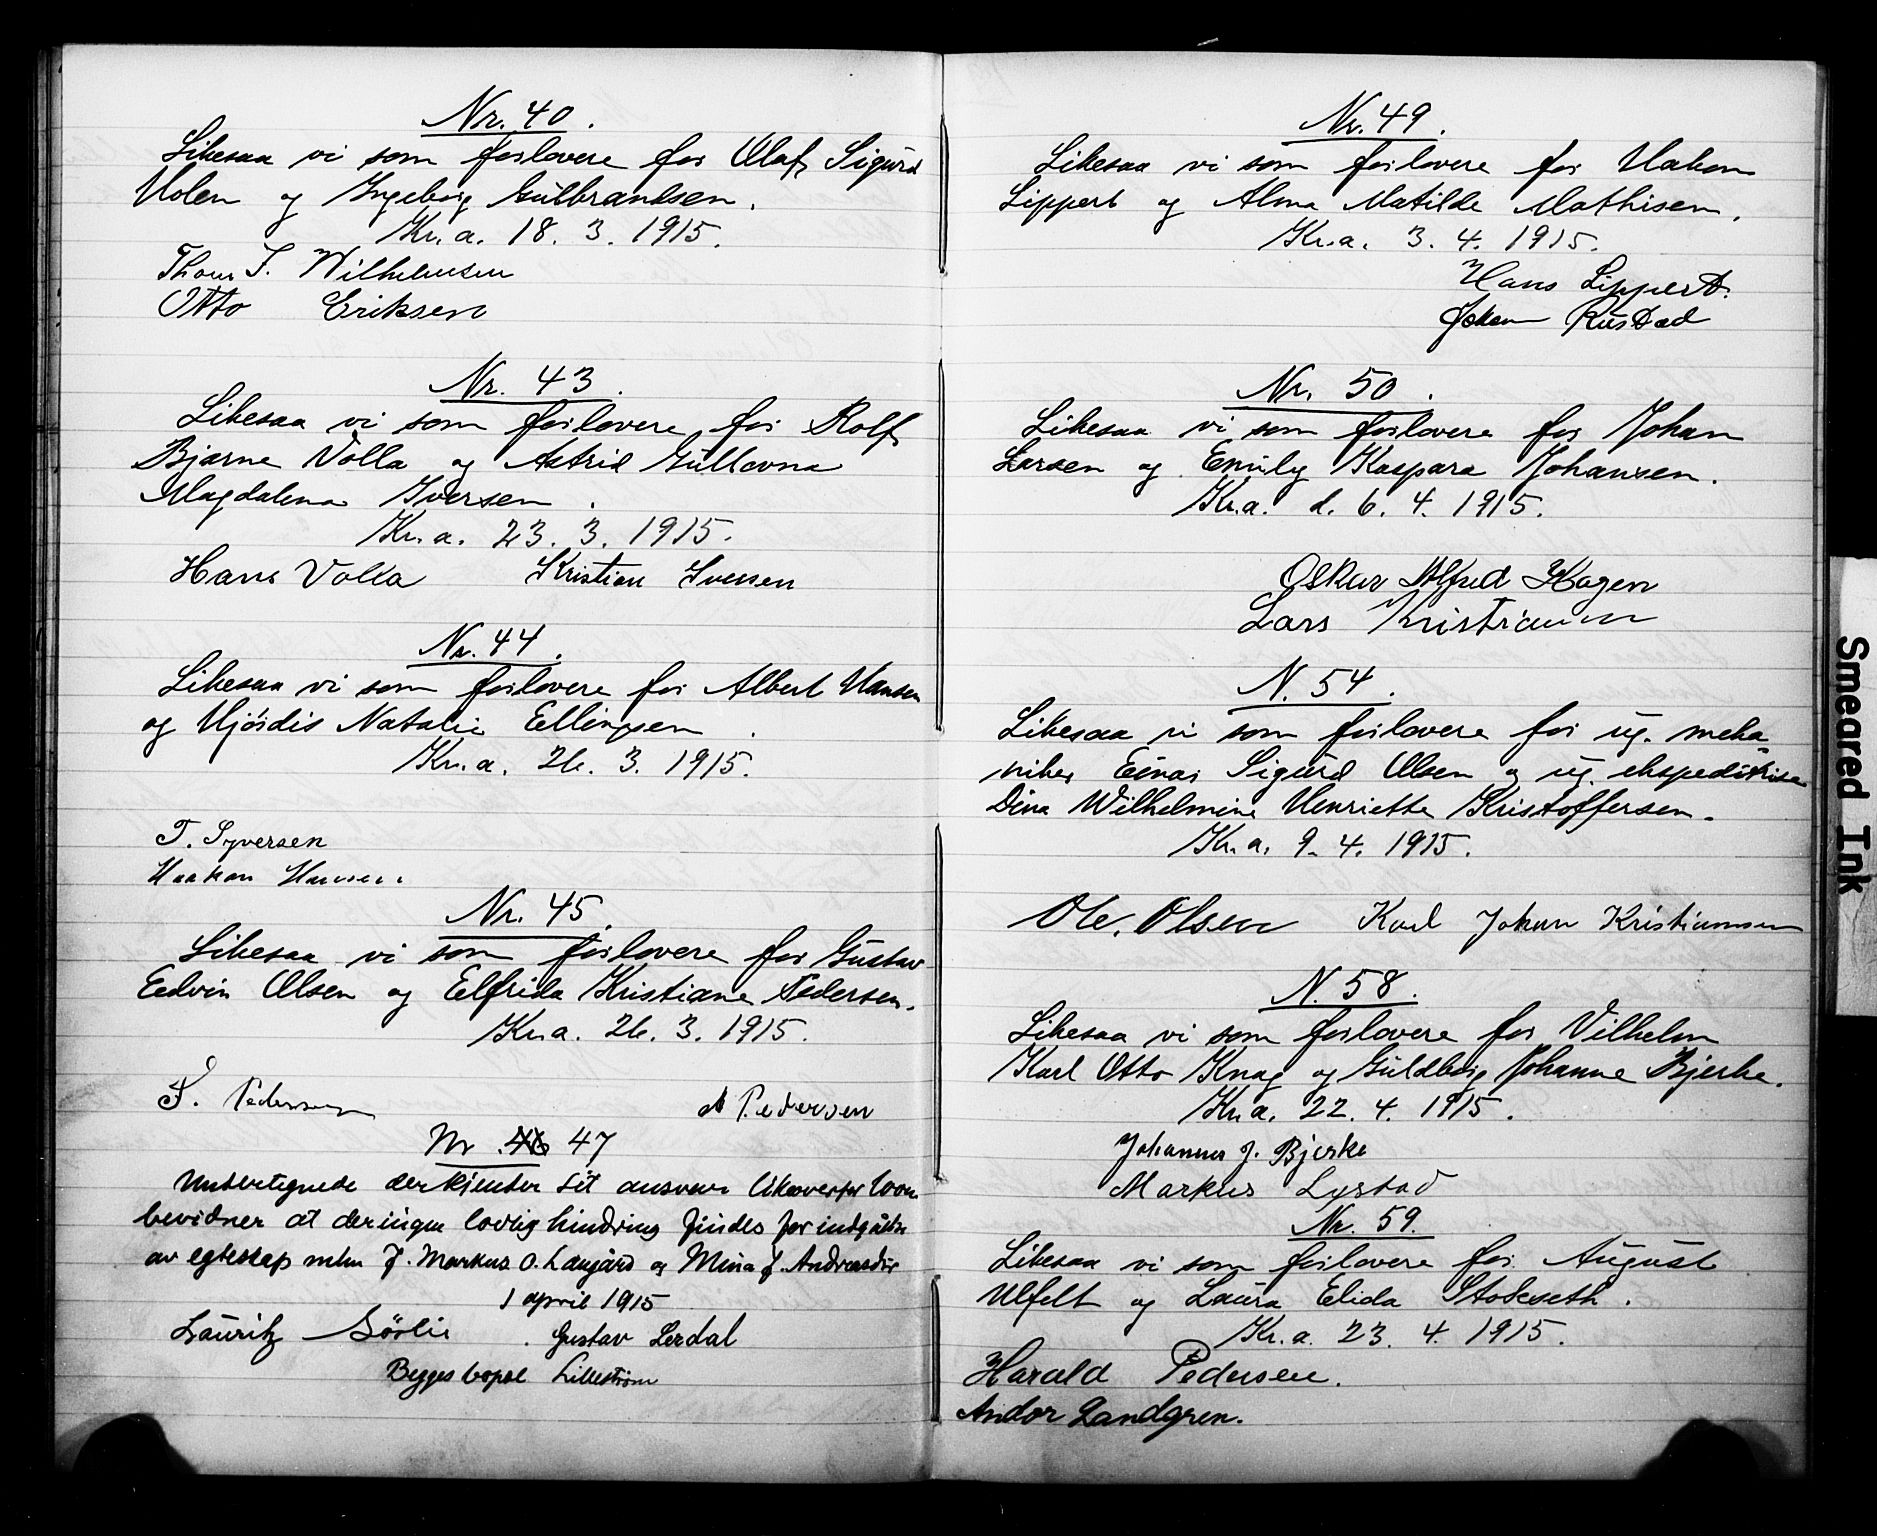 Nr. 40.
Likesaa vi som forlovere for Olaf Sigurd
Holen og Ingeborg Gulbrandsen.
Kr.a. 18. 3. 1915.
Thom T. Wilhelmsen
Otto Eriksen
Nr. 43.
Likesaa vi som forlovere for Rolf
Bjarne Volla og Astrid Gullovna
Magdalena Iversen.
Kr.a. 23. 3. 1915.
Hans Volla Kristian Iversen
Nr. 44.
Likesaa vi som forlovere for Albert Hansen
og Hjørdis Natalie Ellingsen.
Kr.a. 26. 3. 1915.
T. Syversen
Haakon Hansen.
Nr. 45.
Likesaa vi som forlovere for Gustav
Edvin Olsen og Elfrida Kristiane Pedersen.
Kr.a. 26. 3. 1915.
Pedersen A Pedersen
Nr. 46 47
Undertegnede erkjender sit ansvar likeoverfor loven
bevidner at der ingen lovlig hindring findes for indgåelse
av egteskap mln J. Markus O. Laugård og Mina J. Andreasdtr
1 april 1915
Lauritz Sörlie. Gustav Lerdal
Begges bopæl Lillestrøm
Nr. 49.
Likesaa vi som forlovere for Hakon
Lippert og Alma Matilde Mathisen.
Kr.a. 3. 4. 1915.
Hans Lippert.
Johan Rustad
Nr. 50.
Likesaa vi som forlovere for Johan
Larsen og Emily Kaspara Johansen.
Kr.a. d. 6. 4. 1915.
Oskar Alfred Hagen
Lars Kristiansen
N. 54.
Likesaa vi som forlovere for ug. meka-
niker Einar Sigurd Olsen og ug. ekspeditrise
Dina Wilhelmine Henriette Kristoffersen.
Kr.a. 9. 4. 1915.
Ole. Olsen Karl Johan Kristiansen
N. 58.
Likesaa vi som forlovere for Vilhelm
Karl Otto Knag og Guldborg Johanne Bjerke.
Kr.a. 22. 4. 1915.
Johannes J. Bjerke
Markus Lystad
Nr. 59.
Likesaa vi som forlovere for August
Ulfelt og Laura Elida Stokseth.
Kr.a. 23. 4. 1915.
Harald Pedersen.
Andor Landgren.
Smeared Ink